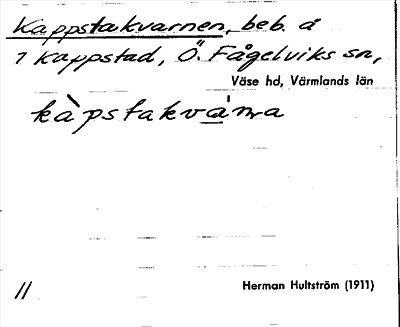 Kappstakvarnen, beb. å
7 Kappstad, Ö. Fågelviks sn,
Väse hd, Värmlands län
kàpstakvá̱nṛa
11
Herman Hultström (1911)